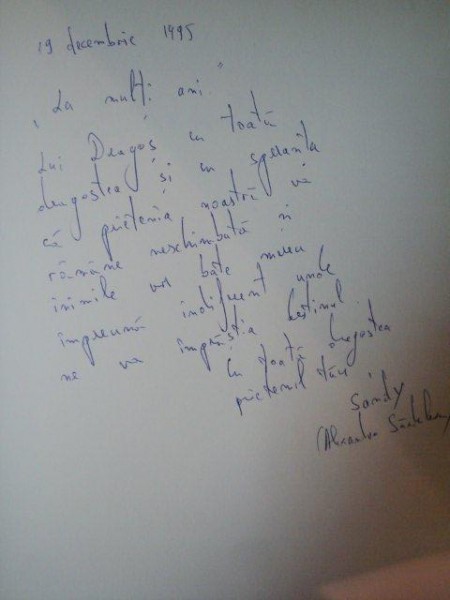 19 decembrie 1995
"La mulți ani."
Lui Dragoș cu toată
dragostea și cu speranța
că prietenia noastră va
rămâne neschimbată și
inimile vor bate mereu
împreună indiferent unde
ne va împrăștia destinul.
Cu toată dragostea
prietenul tău,
Sandy
(Alexandru